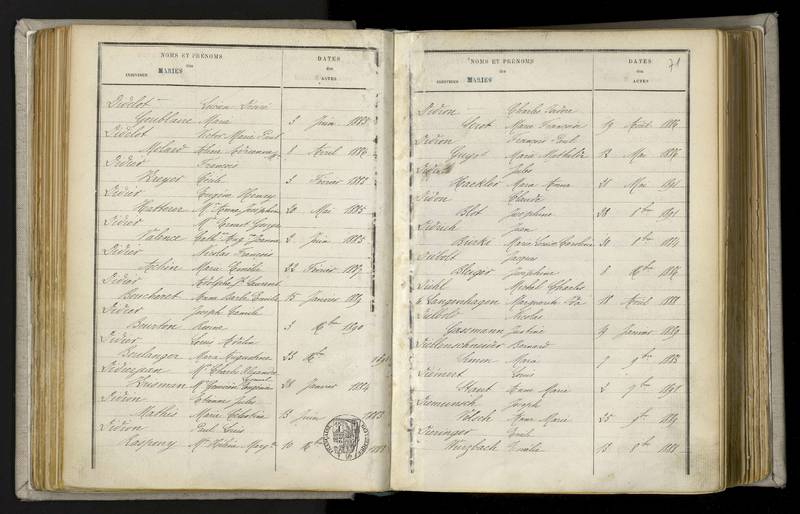 NOMS ET PRÉNOMS
des
INDIVIDUS MARIÉS
DATES
des
ACTES
Didelot Lucien Henri
Goublaire Maria 3 Juin 1888
Didelot Victor Marie Paul
Molard 8 Avril
Didier François
Kreyer Cécile 3 Février 1882
Didier Eugène Henry
Hatterer Mie Anne Joséphine 20 Mai 1885
Didier Mie Ernest Georges
Valence 2 Juin 1885
Didier Nicolas François
Marie Emélie 22 Février
Didier Adolphe St Laurent
Boucharet Anne Marie Emilie 15 Janvier
Didier Joseph Camille
Bourton Anna 3 Xbre 1890
Didier Louis
Boulanger Maria Augustine 23 Xbre
Didierjean Mie Charles Alexandre
Zusman 28 Janvier 1884
Didion Etienne Jules
Mathis Marie Célestine 13 Juin 1883
Didion Paul Louis
Kaspeny Mie Hélène Mary 10 Xbre
71
NOMS ET PRÉNOMS
des
INDIVIDUS MARIÉS
DATES
des
ACTES
Didion Charles Isidore
Scrot Marie Françoise 19 Août 1886
Didion François Paul
Guyot Marie Mathilde 12 Mai 1886
Jules
Haekler Marie Anna 21 Mai 1891
Didon Claude
Blot Joséphine 28 8bre 1891
Didrich Jean
Burki Marie Louise Caroline 31 8bre 1884
Diebolt Jacques
Bleiger Joséphine 8 Xbre 1886
Diehl Michel Charles
de Langenhagen Marguerite Ida 18 Avril 1888
Diebolt Nicolas
Gassmann Justine 19 Janvier 1889
Diellenschneider Bernard
Simon Maria 7 9bre 1883
Diément Louis
Staut Anne Marie 2 7bre 1891
Diemunsch Joseph
Pelsch Anne Marie 25 9bre 1889
Dieringer Emile
Wurzbach Emélie 13 8bre 1888